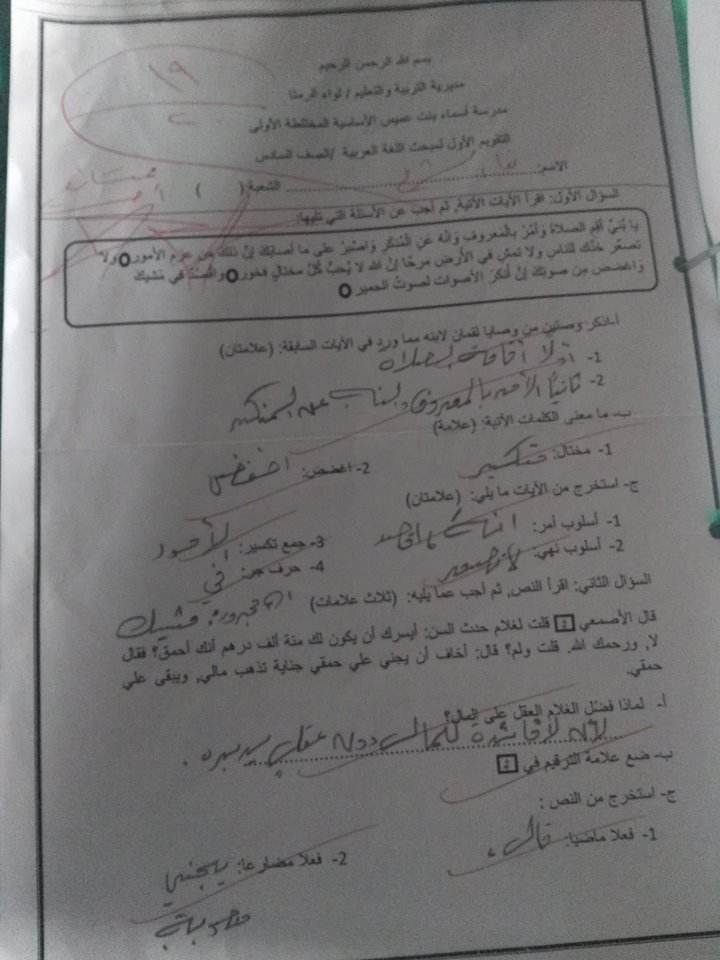 ١٩
٢٠
بسم الله الرحمن الرحيم
مديرية التربية والتعليم / لواء الرمثا
مدرسة أسماء بنت عميس الأساسية المختلطة الأولى
التقويم الأول لمبحث اللغة العربية /الصف السادس
الاسم: ........................ الشعبة:( )
السؤال الأول: اقرأ الآيات الآتية, ثم أجب عن الأسئلة التي تليها:
يا بُنيَّ أقِمِ الصلاةَ وَأمُرْ بِالْمَعروفِ وَانْهَ عَنِ الْمُنكَرِ وَاصْبِرْ على ما أصابَكَ إنَّ ذلكَ مِن عزمِ الأمور ولا
تصعِّر خدَّك للناسِ ولا تمشِ في الأرضِ مرحًا إنَّ الله لا يُحِبُّ كُلَّ مختالٍ فخور واقصِدْ في مَشيِك
وَاغضض مِن صوتِكَ إنَّ أنكرَ الأصوات لصوتُ الحمير
أ-اذكر وصيتين من وصايا لقمان لابنه مما ورد في الآيات السابقة: (علامتان)
1- أولاً أقامة الصلاة
2- ثانياً الأمر بالمعروف عن المنكر
ب- ما معنى الكلمات الآتية: (علامة)
1- مختال: متكبر 2- اغضض: اخفض
ج- استخرج من الآيات ما يلي: (علامتان)
1- أسلوب أمر: 3- جمع تكسير: الأمور
2- أسلوب نهي: لا تصعر 4- حرف جر: في
مشيك
السؤال الثاني: اقرأ النص, ثم أجب عما يليه: (ثلاث علامات)
قال الأصمعي : قلت لغلام حدث السن: أيسرك أن يكون لك مئة ألف درهم أنك أحمق؟ فقال
لا, ورحمك الله. قلت ولم؟ قال: أخاف أن يجني علي حمقي جناية تذهب مالي, ويبقى علي
حمقي.
أ- لماذا فضّل الغلام العقل على المال؟
لأنه لا فائدة للمال دون عقل يديره .
ب- ضع علامة الترقيم في :
ج- استخرج من النص :
1- فعلا ماضيا: قال 2- فعلا مضارعا: يجني